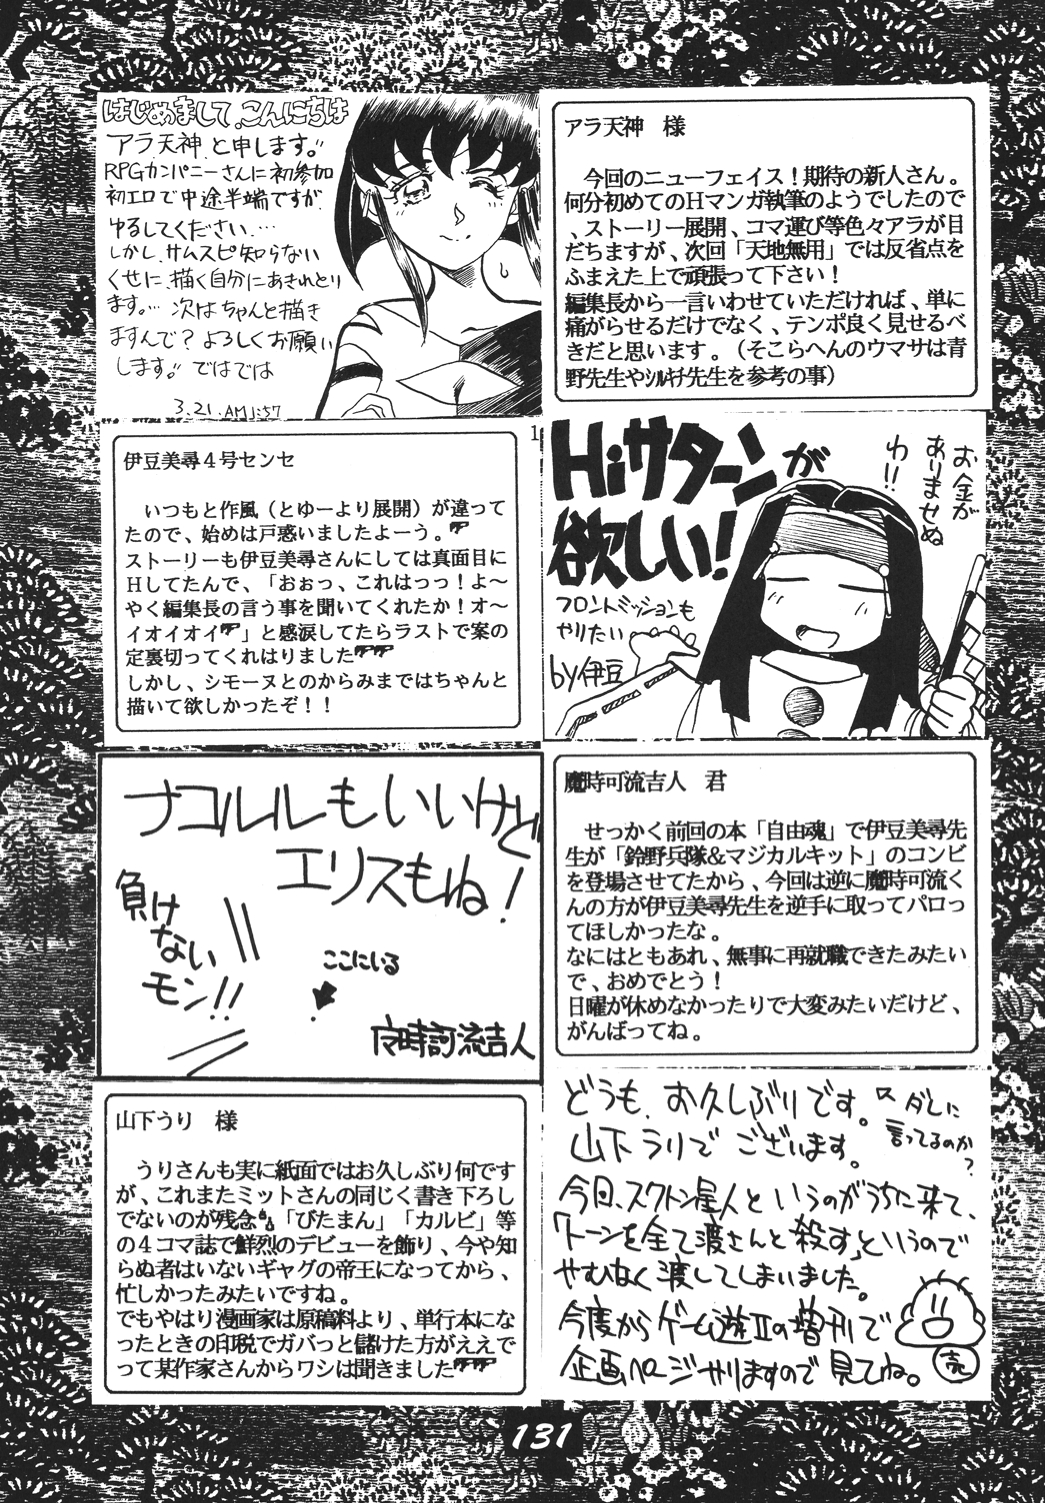 はじめまして。こんにちは
アラ天神と申します。!!
RPGカンパニーさんに初参加
初エロで中途半端ですが
ゆるしてください……
しかし、サムスピ知らない
くせに、描く自分にあきれとり
ます。… 次はちゃんと描き
ますんで？よろしくお願い
します。!! ではでは
3.21. AM1:57
アラ天神　様
今回のニューフェイス！期待の新人さん。
何分初めてのＨマンガ執筆のようでしたので
、ストーリー展開、コマ運び等色々アラが目
だちますが、次回「天地無用」では反省点を
ふまえた上で頑張って下さい！
編集長から一言いわせていただければ、単に
痛がらせるだけでなく、テンポ良く見せるべ
きだと思います。（そこらへんのウマサは青
野先生やｼﾙｷﾁ先生を参考の事）
1
伊豆美尋４号センセ
いつもと作風（とゆーより展開）が違って
たので、始めは戸惑いましたよーう。
ストーリーも伊豆美尋さんにしては真面目に
Ｈしてたんで、「おぉっ、これはっっ！よ～
やく編集長の言う事を聞いてくれたか！オ～
イオイオイ」と感涙してたらラストで案の
定裏切ってくれはりました
しかし、シモーヌとのからみまではちゃんと
描いて欲しかったぞ！！
Hiサターンが
欲しい！
お金が
ありませぬ
わ!!
フロントミッションも
やりたい
by伊豆
ナコルルもいいけど
エリスもね！
負け
ない
モン!!
ここにいる
魔時可流吉人
魔時可流吉人　君
せっかく前回の本「自由魂」で伊豆美尋先
生が「鈴野兵隊＆マジカルキット」のコンビ
を登場させてたから、今回は逆に魔時可流く
んの方が伊豆美尋先生を逆手に取ってパロっ
てほしかったな。
なにはともあれ、無事に再就職できたみたい
で、おめでとう！
日曜が休めなかったりで大変みたいだけど、
がんばってね。
山下うり　様
うりさんも実に紙面ではお久しぶり何です
が、これまたミットさんの同じく書き下ろし
でないのが残念。「びたまん」「カルビ」等
の４コマ誌で鮮烈のデビューを飾り、今や知
らぬ者はいないギャグの帝王になってから、
忙しかったみたいですね。
でもやはり漫画家は原稿料より、単行本にな
ったときの印税でガバっと儲けた方がええで
って某作家さんからワシは聞きました
どうも、お久しぶりです。
ダレに
言ってるのか？
山下うりでございます。
今回、スクトン星人というのがうちに来て、
「トーンを全て渡さんと殺す」というので
やむなく渡してしまいました。
今度からゲーム遊IIの増刊で
企画ページやりますので見てね。
売
131